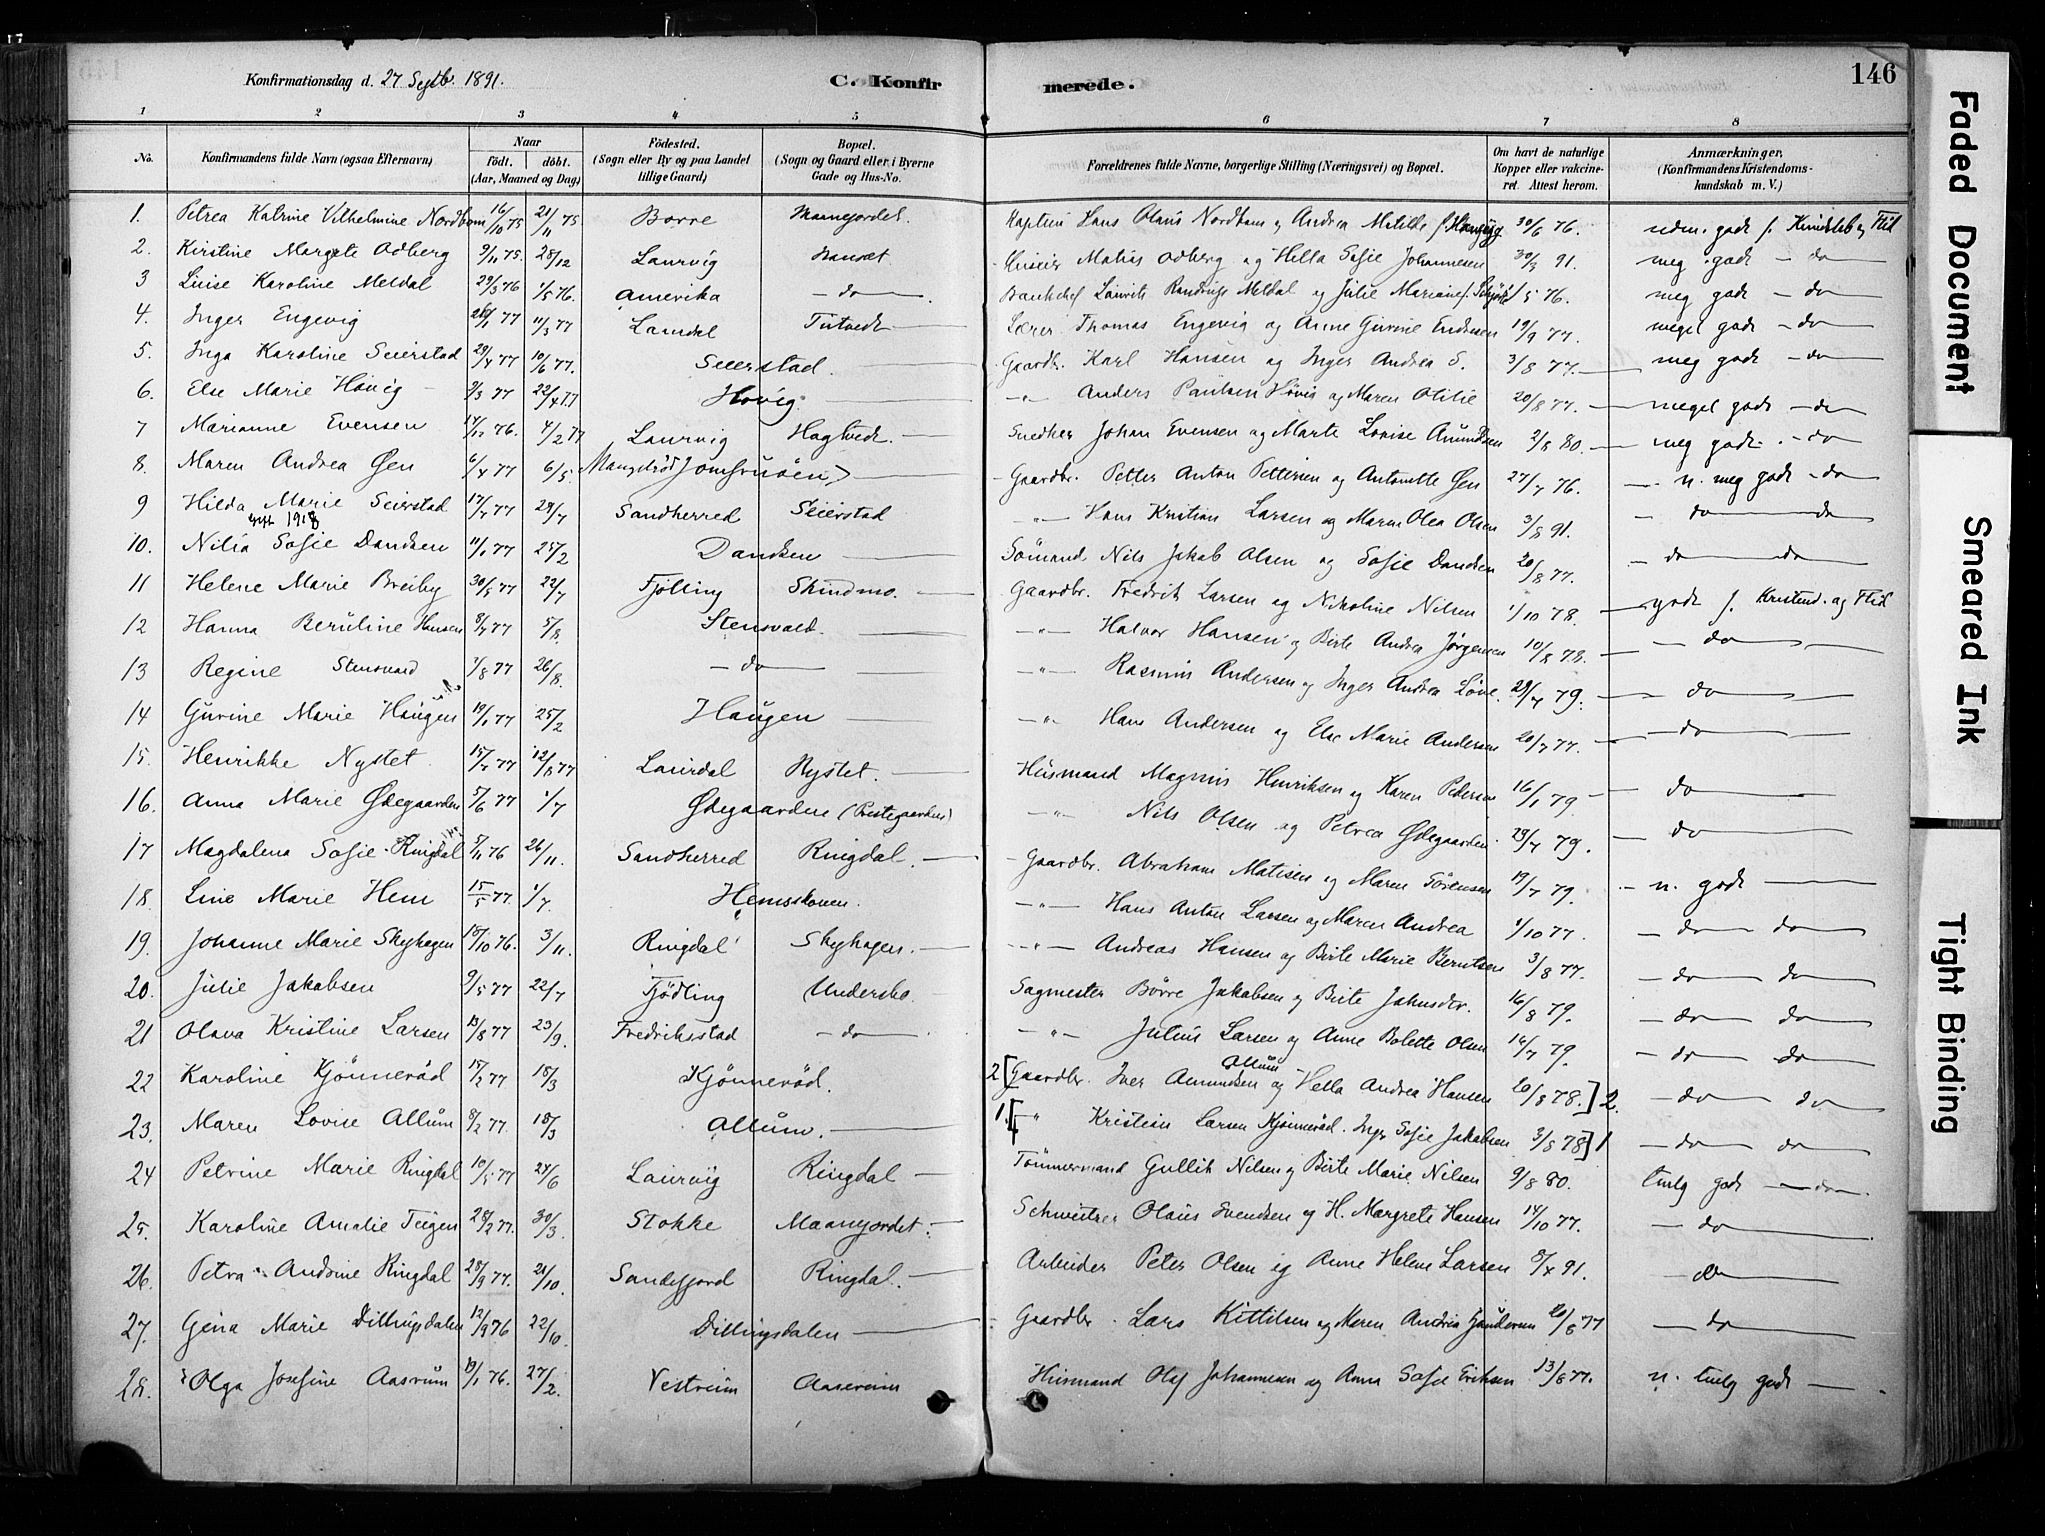 Konfirmationsdag d. 27 Septb. 1891. C. Konfir merede. 146
1 2 3 4 5 6 7 8
No. Konfirmandens fulde Navn (ogsaa Efternavn) Naar født. døbt. (Aar, Maaned og Dag) Födested. (Sogn eller By og paa Landet tillige Gaard) Bopæl. (Sogn og Gaard eller i Byerne Gade og Hus-No. Forældrenes fulde Navne, borgerlige Stilling (Næringsvei) og Bopæl. Om havt de naturlige Kopper eller vakcineret. Attest herom. Anmærkninger. (Konfirmandens Kristendomskundskab m. V.)
1. Petrea Katrine Vilhelmine Nordbom 16/10 75 21/11 75 Borre Maanejordet. Kaptein Lans Olaus Nordbom og Andrea Matilde 30/6 76. udm. godt f. Kundskb og Flid
2. Kirstine Margete Odberg 9/11 75. 25/12 Laurvig Nanset Matias Odberg og Hella Sofie Johannesen 30/3 91. meg. godt - do
3 Luise Karoline Meldal 29/3 76 1/5 76. Amerika - do - Bankchef Laurits Meldal og Julie Mariane 1/5 76. meg godt - do
4. Inger Engevig 26/1 77 11/3 77 Lardal Tutvedt Lærer Thomas Engevig og Anne Gurine Endresen 19/9 77. meget godt - do
5. Inga Karoline Seierstad 29/4 77 10/6 77. Seierstad. Gaardbr. Karl Hansen og Inger Andrea S. 3/8 77. meg godt - do
6. Else Marie Høvig 2/3 77 22/4 77 Høvig. -"- Anders Paulsen Høvig og Maren Otilie 20/8 77. meget godt - do
7 Marianne Evensen 17/12 76. 4/2 77 Laurvig Hagtvedt. Snedker Johan Evensen og Marte Lovise Amundsen 2/8 80. meg godt. - do
8. Maren Andrea Øen 6/4 77 6/5. Jomfruøen) Gaardbr. Petter Anton Pettersen og Antonette Øen 27/7 76. n. meg godt - do
9 Hilda Marie Seierstad 17/7 77 29/7 Sandherred Seierstad -"- Hans Kristian Larsen og Maren Olea Olsen 3/8 91. - do - do
1918
10. Nilia Sofie Dandsen 11/1 77 25/2 Dandsen Sömand Nils Jakob Olsen og Sofie Dandsen 20/8 77. - do - do
11 Helene Marie Breiby 30/5 77 22/7 Fjölling Skindmo. Gaardbr. Fredrik Larsen og Nikoline Nilsen 1/10 78. godt f. Kristend. og Flid
12 Hanna Beruline Hansen 8/7 77 5/8. Stensvold. -"- Halvor Hansen og Birte Andrea Jørgensen 10/8 78. - do -
13 Regine Stensvard 7/8 77 26/8. - do - -"- Rasmus Andersen og Inger Andrea Löve. 29/7 79. - do -
14 Gurine Marie Haugen 19/1 77 25/2 Haugen -"- Hans Andersen og Else Marie Andersen 20/7 77. - do -
15. Henrikke Nystet 15/7 77 12/8 77 Laurdal Nystet. Husmand Magnus Henriksen og Karen Pedersen 16/1 79. do
16. Anna Marie Ødegaarden 5/6 77 1/7 Ødegaarden (Prestegaarden) -"- Nils Olsen og Petrea Ødegaarden 29/7 79. - do
17 Magdalena Sofie Ringdal 5/11 76 26/11. Sandherred Ringdal. Gaardbr. Abraham Matisen og Maren Sörensen 19/7 79. - n. godt
18. Line Marie Hem 15/5 77 1/7. Hemsskoven. -"- Hans Anton Larsen og Maren Andrea 1/10 77. - do do
19. Johanne Marie Skyhagen 15/10 76. 3/11. Ringdal Skyhagen. -"- Andreas Hansen og Birte Marie Berntsen 3/8 77. - do do
20. Julie Jakobsen 9/5 77 22/7 Fjödling Undersbo. Sagmester Börre Jakobsen og Birte Jahnsdtr. 16/8 79. - do do
21 Olava Kristine Larsen 13/8 77 23/9. Fredriksstad - do -"- Julius Larsen og Anne Bolette Olsen 16/7 79. - do do
22 Karoline Kjönneröd 15/2 77 18/3 Kjönneröd. 2 [Gaardbr. Iver Amundsen Allum og Hella Andrea Hansen 20/8 78.] 2. - do do
23. Maren Lovise Allum 8/2 77. 18/3 Allum. 1. [-"- Kristian Larsen Kjønneröd. Ing. Sofie Jakobsen 3/8 78] 1 - do do
24 Petrine Marie Ringdal 10/5 77 24/6 Laurvig Ringdal Tömmermand Gullik Nilsen og Birte Marie Nilsen 9/8 80. temlg godt - do.
25. Karoline Amalie Teigen 28/2 77. 30/3. Stokke Maanejordet. Schweitzer Olaus Svendsen og H. Margrete Hansen 14/10 77. - do
26. Petra Andrine Ringdal 28/9 77. 21/10. Sandefjord Ringdal. Arbeider Peter Olsen og Anne Helene Larsen 8/4 91. - do
27. Gina Marie Dillingsdalen 12/9 76 22/10. Dillingsdalen Gaardbr. Lars Kittilsen og Maren Andrea Gundersen 20/8 77 - do
28. Olga Josefine Aasrum 19/1 76. 27/2. Vestreim Aasereim Husmand Olaf Johannesen og Anne Sofie Eriksen 13/8 77. n. temlg godt
Faded Document
Smeared Ink
Tight Binding